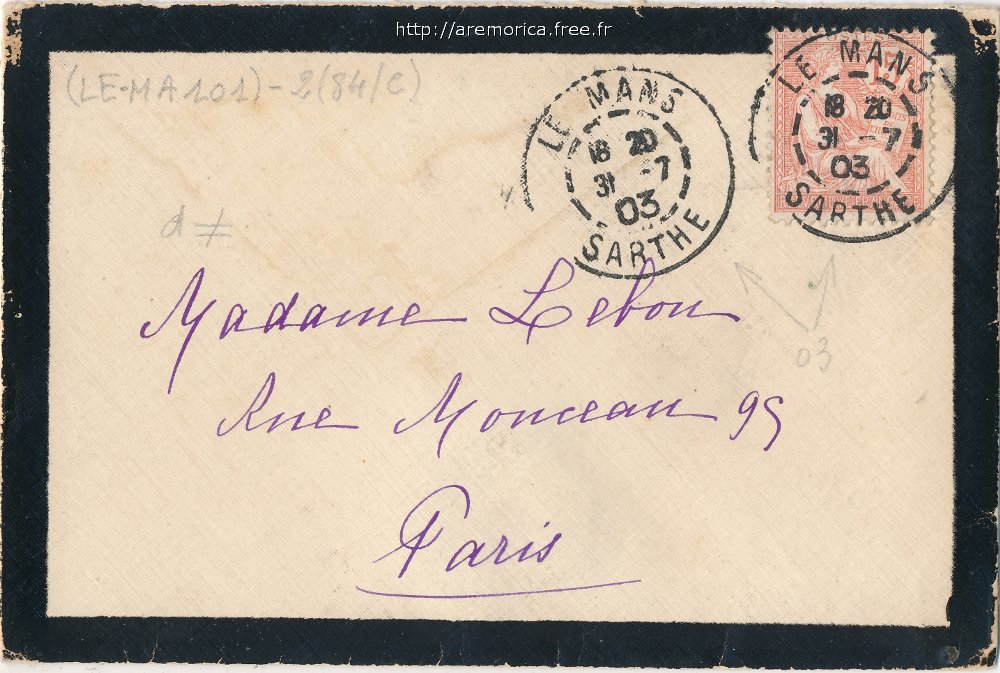 http://aremorica.free.fr
(LE-MA101)-2(84/C)
LE MANS
18 20
31 -7
03
SARTHE
15
LE MANS
18 20
31 -7
03
SARTHE
d ≠
Madame Lebon
03
Rue Monceau 95
Paris